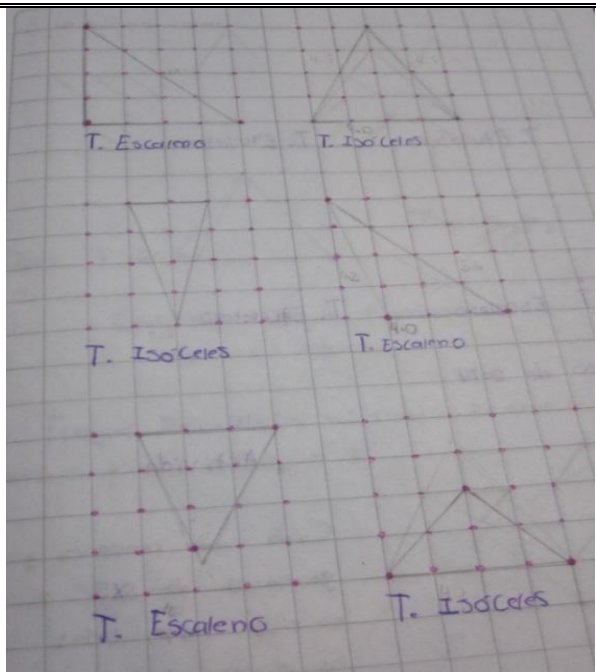 T. Escaleno
T. Isóceles
T. Isóceles
4.0
T. Escaleno
T. Escaleno
T. Isóceles